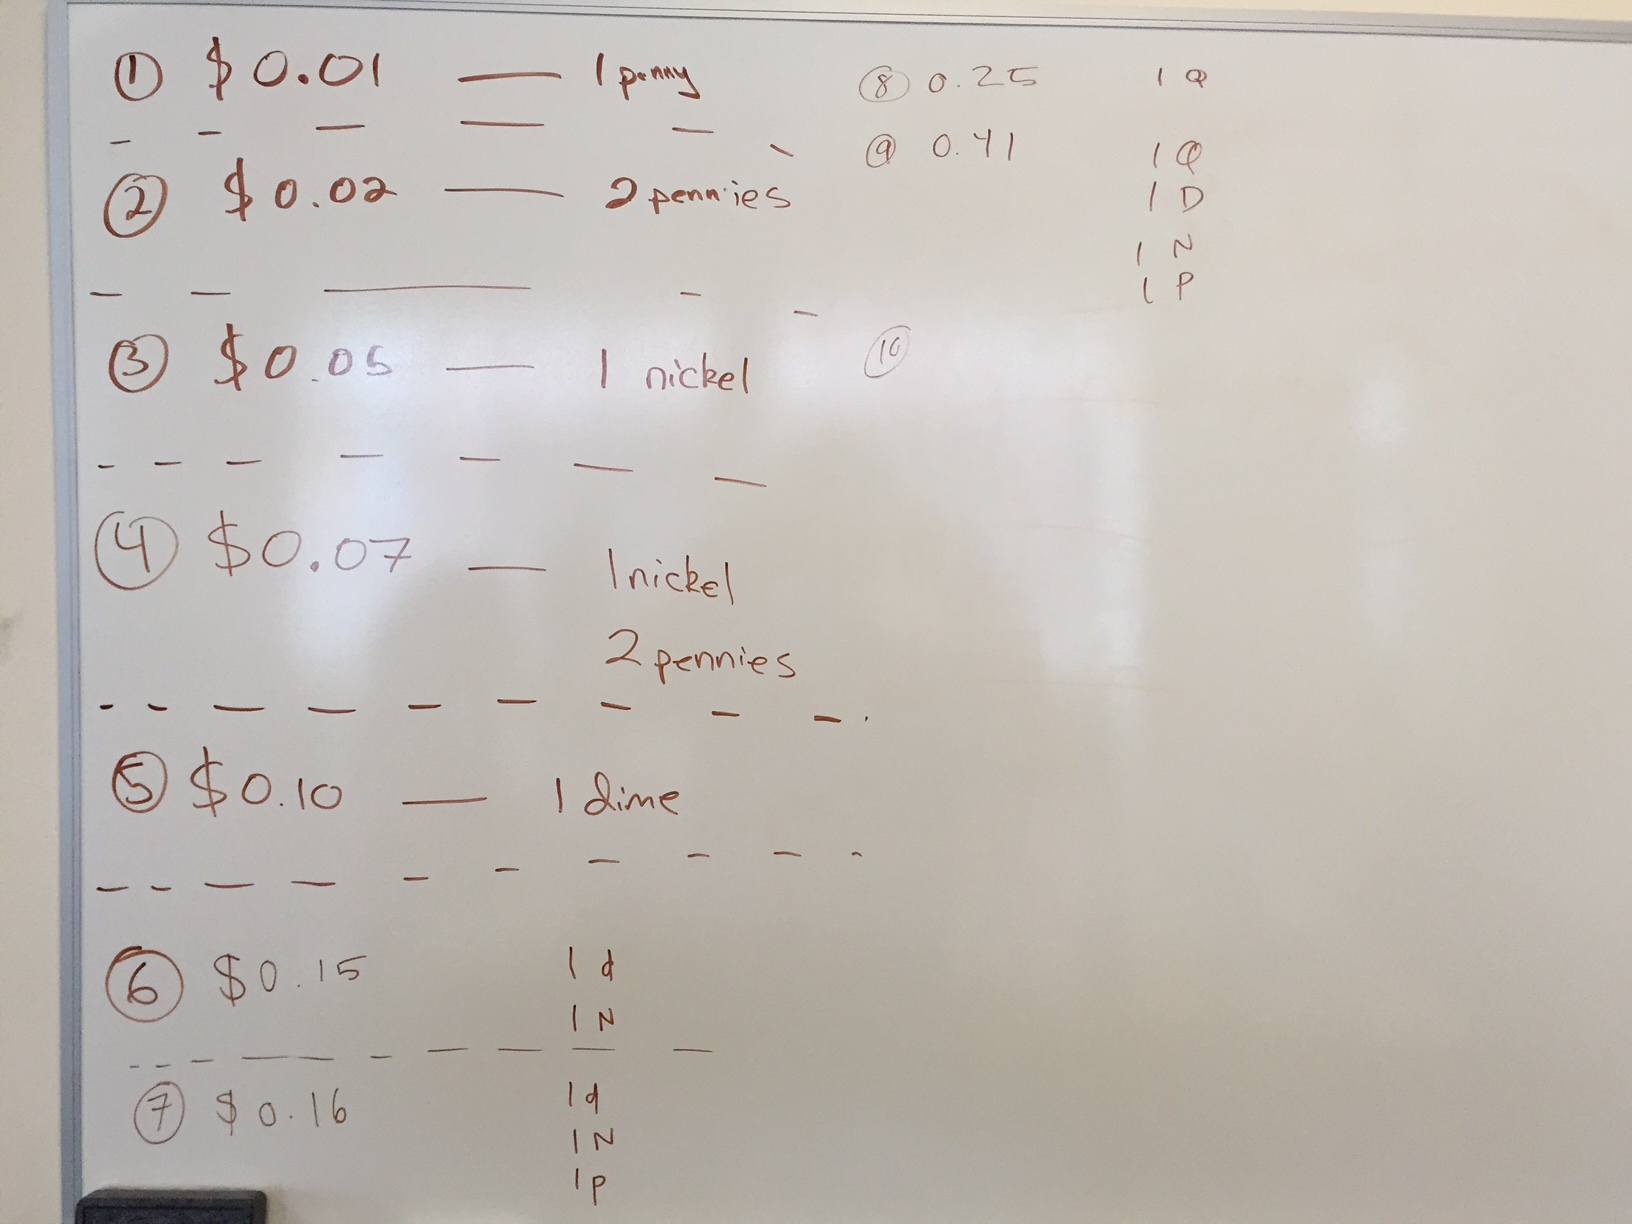 ① $0.01 — 1 penny
② $0.02 — 2 pennies
③ $0.05 — 1 nickel
④ $0.07 — 1 nickel
2 pennies
⑤ $0.10 — 1 dime
⑥ $0.15 1 d
1 N
⑦ $0.16 1 d
1 N
1 P
⑧ 0.25 1 Q
⑨ 0.41 1 Q
1 D
1 N
1 P
⑩